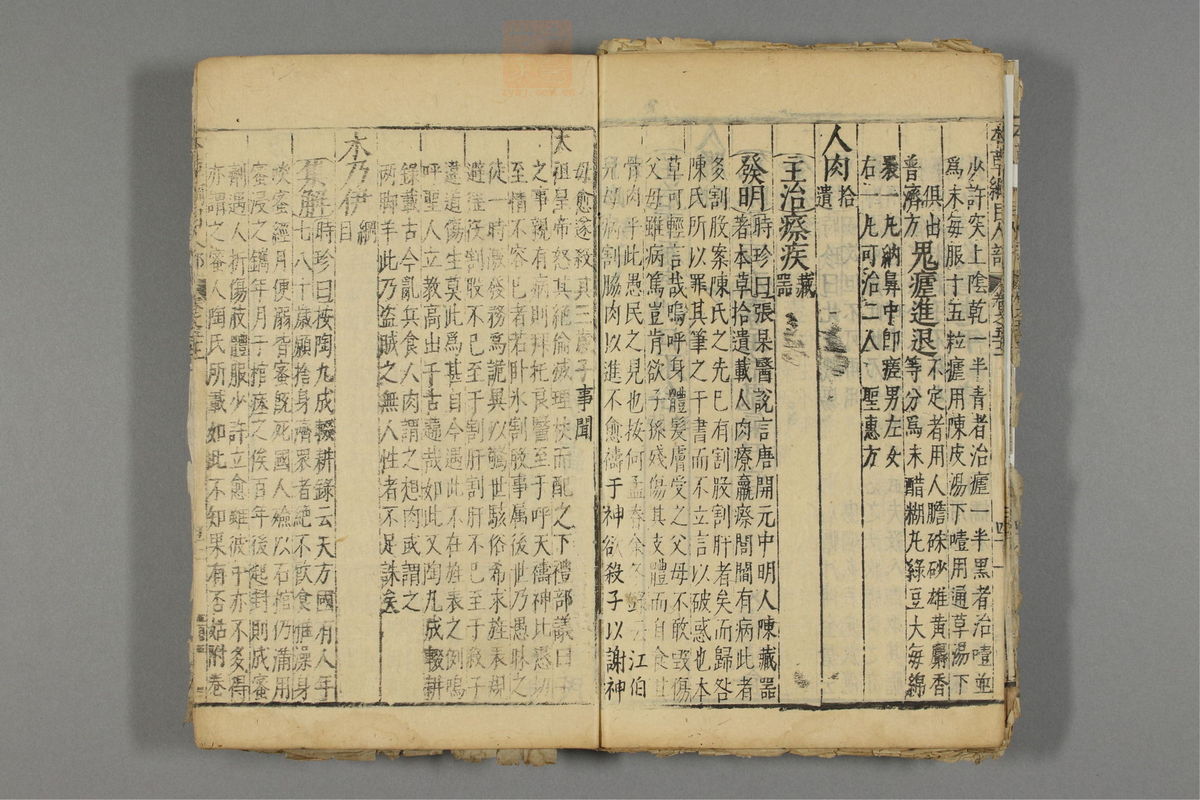 本草綱目人部
少許突上陰乾一半青者治瘧一半黑者治噎並
爲末每服十五粒瘧用陳皮湯下噎用通草湯下
俱出普濟方 鬼瘧進退不定者用人膽硃砂雄黃麝香
等分爲末醋糊丸綠豆大每綿
裹一丸納鼻中卽瘥男左女
右一丸可治二人 聖惠方
人肉拾遺
主治瘵疾藏器
發明時珍曰張杲醫說言唐開元中明人陳藏器
著本草拾遺載人肉療羸瘵閭閻有病此者
多割股案陳氏之先已有割股割肝者矣而歸咎
陳氏所以罪其筆之于書而不立言以破惑也本
草可輕言哉嗚呼身體髮膚受之父母不敢毀傷
父母雖病篤豈肯欲子孫殘傷其支體而自食
骨肉乎此愚民之見也按何孟春餘冬錄云江伯
兒母病割脇肉以進不愈禱于神欲殺子以謝神
母愈遂殺其三歲子事聞
太祖皇帝怒其絶倫滅理杖而配之下禮部議曰子
之事親有病則拜托良醫至于呼天禱神此懇切
至情不容已者若卧氷割股事属後世乃愚昧之
徒一時激發務爲詭異以驚世駭俗希求旌表規
避徭役割股不已至于割肝割肝不已至于殺子
違道傷生莫此爲甚自今遇此不在旌表之例嗚
呼聖人立教高出千古韙哉如此又陶九成輟耕
錄載古今亂兵食人肉謂之想肉或謂之
兩脚羊此乃盜賊之無人性者不足誅矣
木乃伊綱目
集解時珍曰按陶九成輟耕錄云天方國有人年
七八十歲願捨身濟眾者絶不飲食惟澡身
啖蜜經月便溺皆蜜旣死國人殮以石棺仍滿用
蜜浸之鐫年月于棺瘞之俟百年後起封則成蜜
劑遇人折傷肢體服少許立愈雖彼中亦不多得
亦謂之蜜人陶氏所載如此不知果有否姑附卷